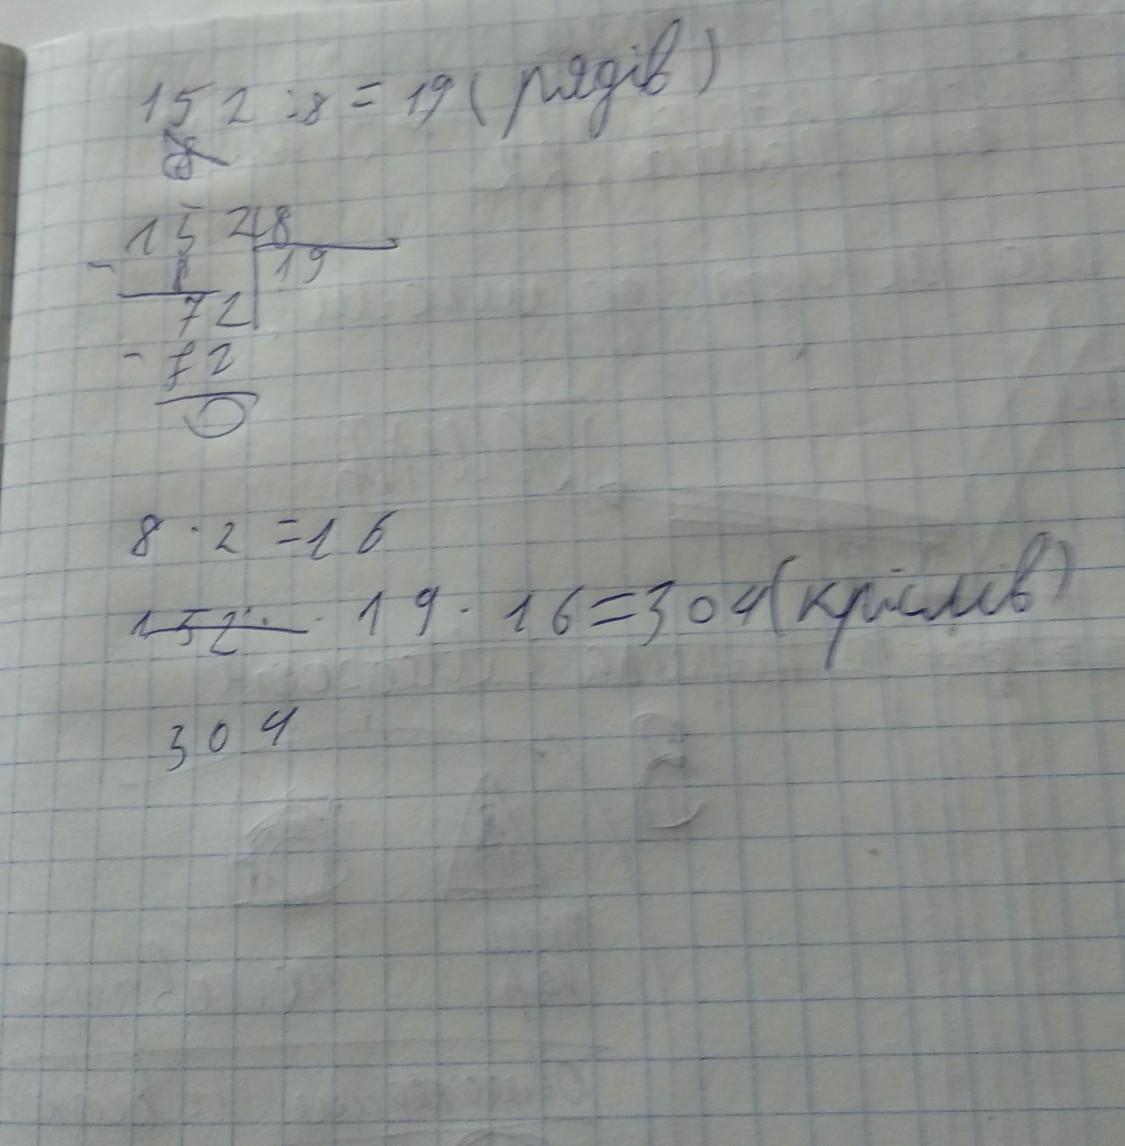 152 : 8 = 19 (рядів)
8
152 8
- 8 19
72
- 72
0
8 · 2 = 16
152 · 19 · 16 = 304 (кріслів)
304